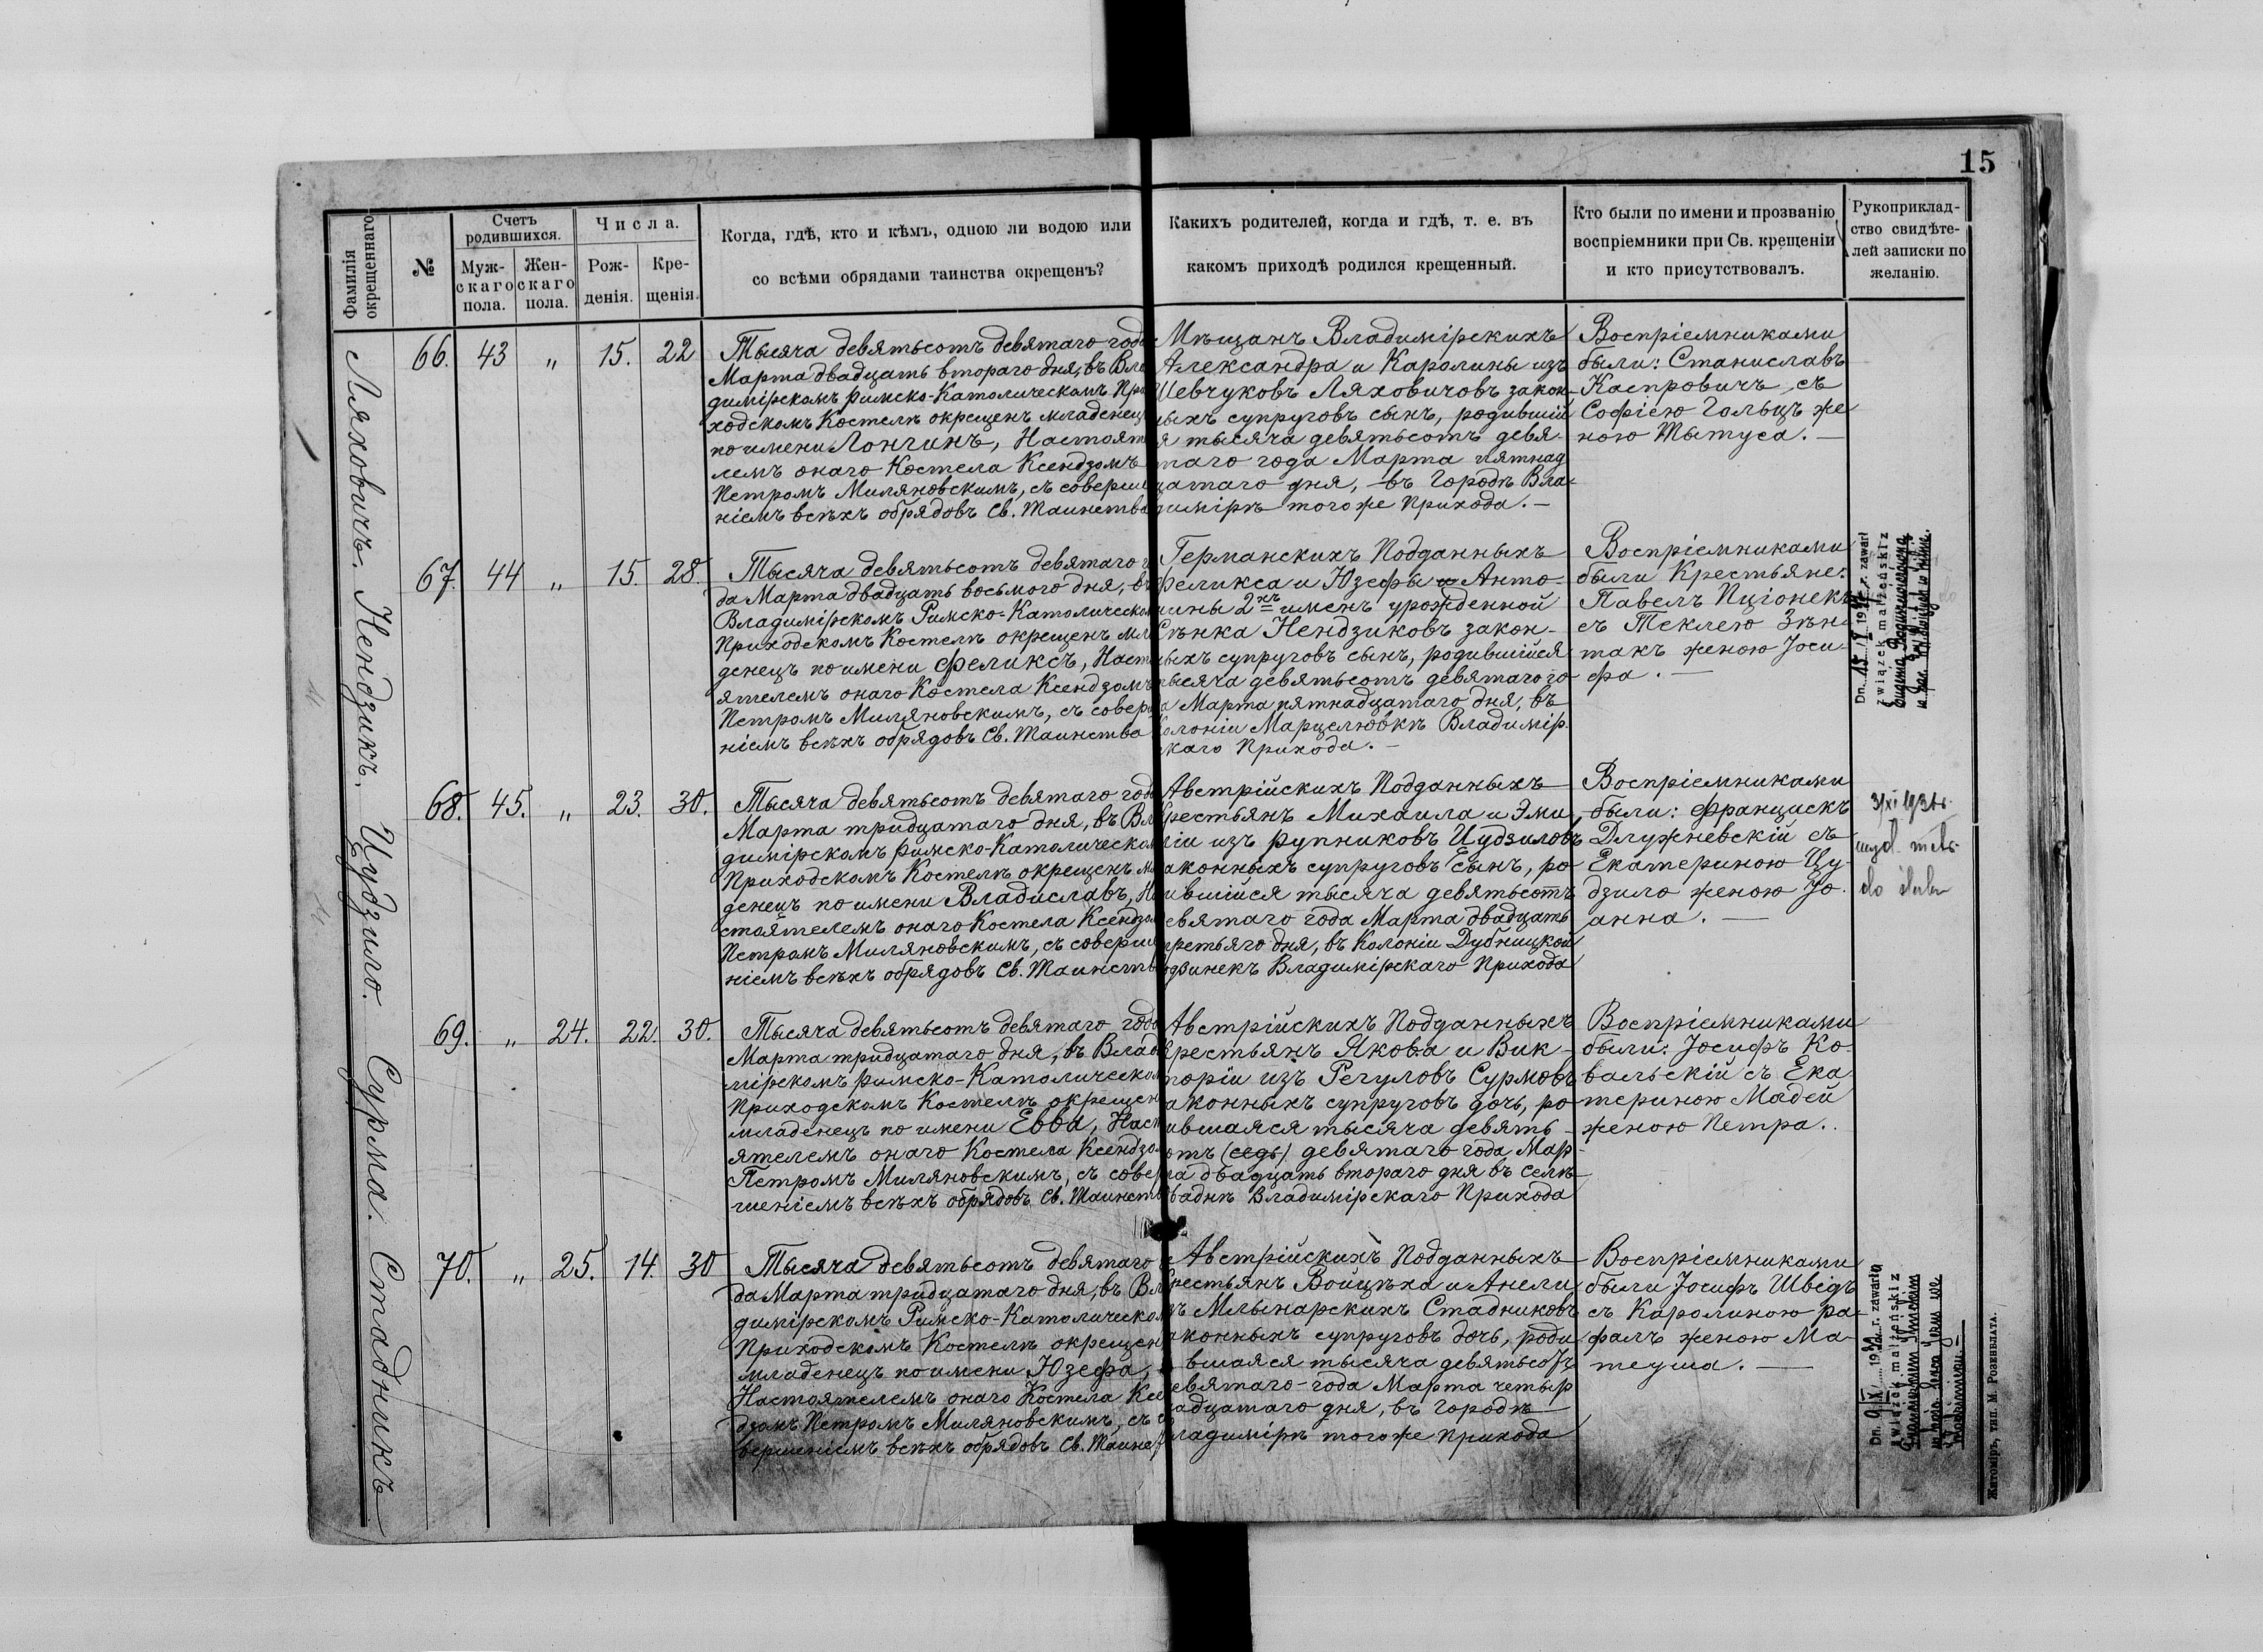 15
Фамилія окрещеннаго
№
Счетъ родившихся.
Муж-
скаго
пола.
Жен-
скаго
пола.
Числа.
Рож-
денія.
Кре-
щенія.
Когда, гдѣ, кто и кѣмъ, одною ли водою или
со всѣми обрядами таинства окрещенъ?
Какихъ родителей, когда и гдѣ, т. е. въ
какомъ приходѣ родился крещенный.
Кто были по имени и прозванію
воспріемники при Св. крещеніи
и кто присутствовалъ.
Рукоприклад-
ство свидѣте-
лей записки по
желанію.
Ляховичъ.
66. 43 „ 15. 22
Тысяча девятьсотъ девятаго года
Марта двадцать втораго дня, въ Вла
димірскомъ Римско-Католическомъ При
ходскомъ Костелѣ окрещенъ младенецъ
по имени Лонгинъ, Настоят
лемъ онаго Костела Ксендзомъ
Петромъ Миляновскимъ, съ соверше
ніемъ всѣхъ обрядовъ Св. Таинства
Мѣщанъ Владимірскихъ
Александра и Каролины изъ
Шевчуковъ Ляховичовъ закон-
ныхъ супруговъ сынъ, родившій
я тысяча девятьсотъ девя-
таго года Марта пятнад
цатаго дня, въ Городѣ Вла-
димірѣ того же Прихода.
Воспріемниками
были: Станиславъ
Каспровичъ, съ
Софіею Гольцъ же
ною Тытуса.
Нендзикъ.
67. 44 „ 15. 28.
Тысяча девятьсотъ девятаго г
да Марта двадцать восьмого дня, въ
Владимірскомъ Римско-Католическом
Приходскомъ Костелѣ окрещенъ мла
денецъ по имени Феликсъ, Наст
ятелемъ онаго Костела Ксендзомъ
Петромъ Миляновскимъ, съ соверш
ніемъ всѣхъ обрядовъ Св. Таинства
Германскихъ Подданныхъ
Феликса и Юзефы Анто-
нины 2хъ именъ урожденной
Сѣнка Нендзиковъ закон-
ныхъ супруговъ сынъ, родившійся
тысяча девятьсотъ девятаго го-
а Марта пятнадцатаго дня, въ
Колоніи Марцелювкѣ Владимір.
скаго Прихода.
Воспріемниками
были Крестьяне:
Павелъ Пціонекъ
съ Теклею Зѣн-
такъ женою Іоси-
фа.
Dn. 15 r. zawarł
związek małżeński z
Цудзило.
68. 45. „ 23. 30.
Тысяча девятьсотъ девятаго года
Марта тридцатаго дня, въ Вла
димірскомъ Римско-Католическом
Приходскомъ Костелѣ окрещенъ мла
денецъ по имени Владиславъ, На
стоятелемъ онаго Костела Ксендзом
Петромъ Миляновскимъ, съ соверше
ніемъ всѣхъ обрядовъ Св. Таинств
Австрійскихъ Подданныхъ
Крестьянъ Михаила и Эми
ліи изъ Рупниковъ Цудзиловъ
аконныхъ супруговъ сынъ, ро
ившійся тысяча девятьсотъ
евятаго года Марта двадцать
третьяго дня, въ Колоніи Дубницкой
одзинекъ Владимірскаго Прихода
Воспріемниками
были: Францискъ
Длужневскій съ
Екатериною Цу-
дзило женою Іо-
анна.
wyd. metr.
do ślubu
Сурма.
69. „ 24. 22. 30.
Тысяча девятьсотъ девятаго года
Марта тридцатаго дня, въ Влад
мірскомъ Римско-Католическом
Приходскомъ Костелѣ окрещен
младенецъ по имени Евва, Наст
ятелемъ онаго Костела Ксендзо
Петромъ Миляновскимъ, съ совер
шеніемъ всѣхъ обрядовъ Св. Таинств
Австрійскихъ Подданныхъ
Крестьянъ Якова и Вик-
торіи изъ Регуловъ Сурмовъ
аконныхъ супруговъ дочь, ро
ившаяся тысяча девять-
отъ (седь) девятаго года Мар-
та двадцать втораго дня въ селѣ
Владимірскаго Прихода
Воспріемниками
были: Іосифъ Ко-
вальскій съ Ека
териною Мадей
женою Петра.
Стадникъ
70. „ 25. 14. 30
Тысяча девятьсотъ девятаго
да Марта тридцатаго дня, въ Вла
димірскомъ Римско-Католическом
Приходскомъ Костелѣ окрещен
младенецъ по имени Юзефа,
Настоятелемъ онаго Костела Ксе
дзомъ Петромъ Миляновскимъ, съ с
вершеніемъ всѣхъ обрядовъ Св. Таинст
Австрійскихъ Подданныхъ
Крестьянъ Войцѣха и Анели
ъ Млынарскихъ Стадниковъ
аконныхъ супруговъ дочь, роди
вшаяся тысяча девятьсотъ
евятаго года Марта четыр
надцатаго дня, въ городѣ
Владимірѣ того же Прихода
Воспріемниками
были Іосифъ Швідъ
съ Каролиною Ра-
фалъ женою Ма-
теуша.
Dn. 9 r. zawarła
związek małżeński z
Житоміръ, тип. М. Розенблата.